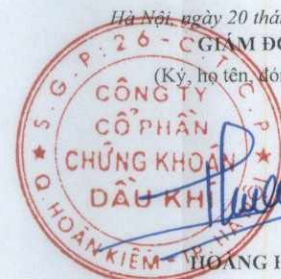 Hà Nội, ngày 20 thá
GIÁM ĐỐ
(Ký, họ tên, đón
S.G.P:26-C.T.C.P
CÔNG TY
CỔ PHẦN
CHỨNG KHOÁN
DẦU KHÍ
Q. HOÀN KIẾM - TP. HÀ
HOÀNG H